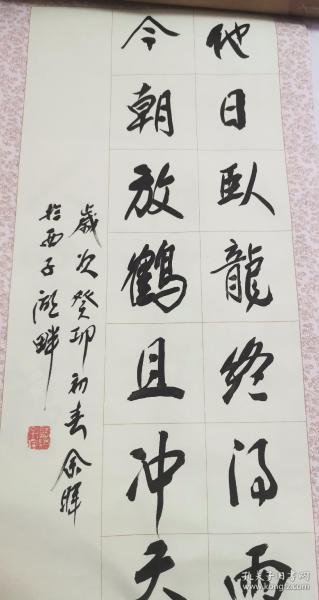 他日臥龍終得雨
今朝放鶴且冲天
歲次癸卯初春余暉
於西子湖畔
孔夫子旧书网